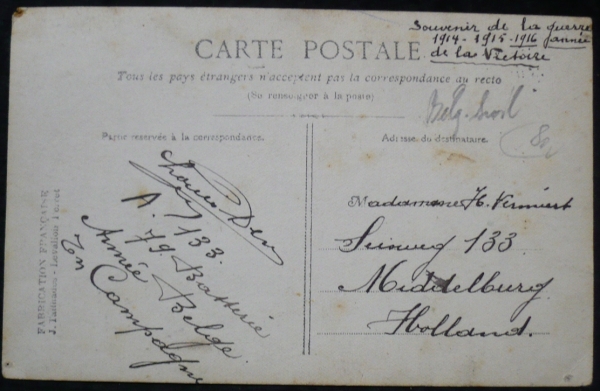 Souvenir de la guerre
1914-1915-1916 année
de la Victoire
CARTE POSTALE
Tous les pays étrangers n'acceptent pas la correspondance au recto
(Se renseigner à la poste)
Partie réservée à la correspondance.
Adresse du destinataire.
A. 133.
79. Batterie
Armée Belge
En Campagne
Madame H.
133
Middelburg
Holland.
FABRICATION FRANÇAISE